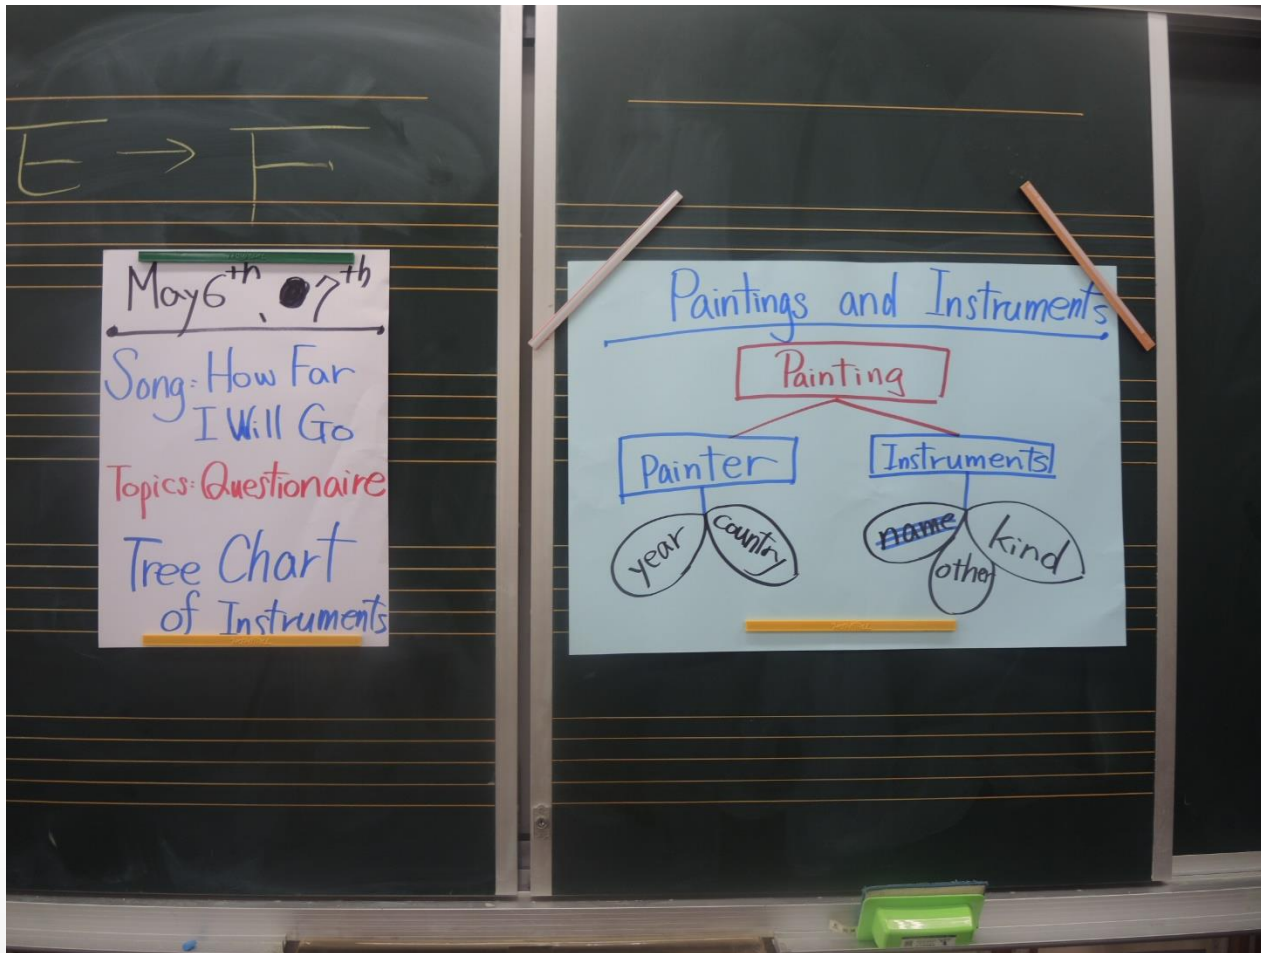 E → F
May 6th, 7th
Song: How Far
I Will Go
Topics: Questionaire
Tree Chart
of Instruments
Paintings and Instruments
Painting
Painter
Instruments
year
country
name
other
kind